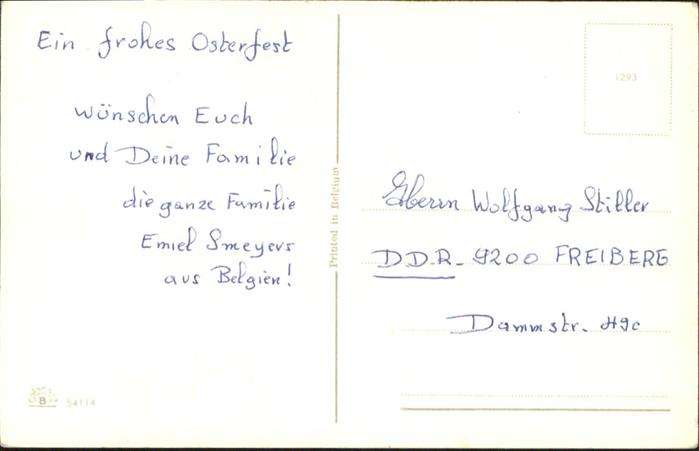 Ein frohes Osterfest
wünschen Euch
und Deine Familie
die ganze Familie
Emiel Smeyers
aus Belgien!
B 54114
Printed in Belgium
1293
Herrn Wolfgang Stiller
DDR-9200 FREIBERG
Dammstr. 49c